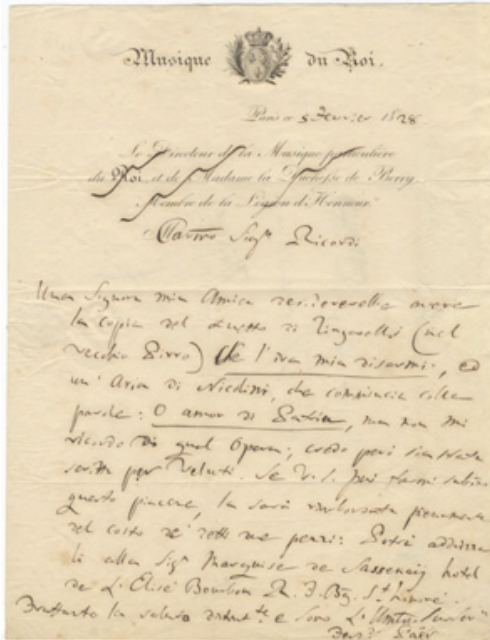 Musique du Roi.
Paris ce 5 Fevrier 1828
Le Directeur de la Musique particulière
du Roi, et de Madame la Duchesse de Berry,
Membre de la Légion d'Honneur.
Sigr Ricordi
Una Signora mia Amica desidererebbe avere
la copia del duetto di Zingarelli (nel
vecchio Pirro) Se l'ira mia disarmi, ed
un' Aria di Nicolini, che comincia colle
parole: O amor di Patria, ma non mi
ricordo di qual Opera; credo però sia stata
scritta per Veluti. Se V. S. può farmi subito
questo piacere, la sarà rimborsata pienamente
del costo de' detti due pezzi: Potrà
li alla Sigra Marquise de Sassenay hotel
de L'Elisé Bourbon R. F. Bg. St honoré.
la saluto e sono